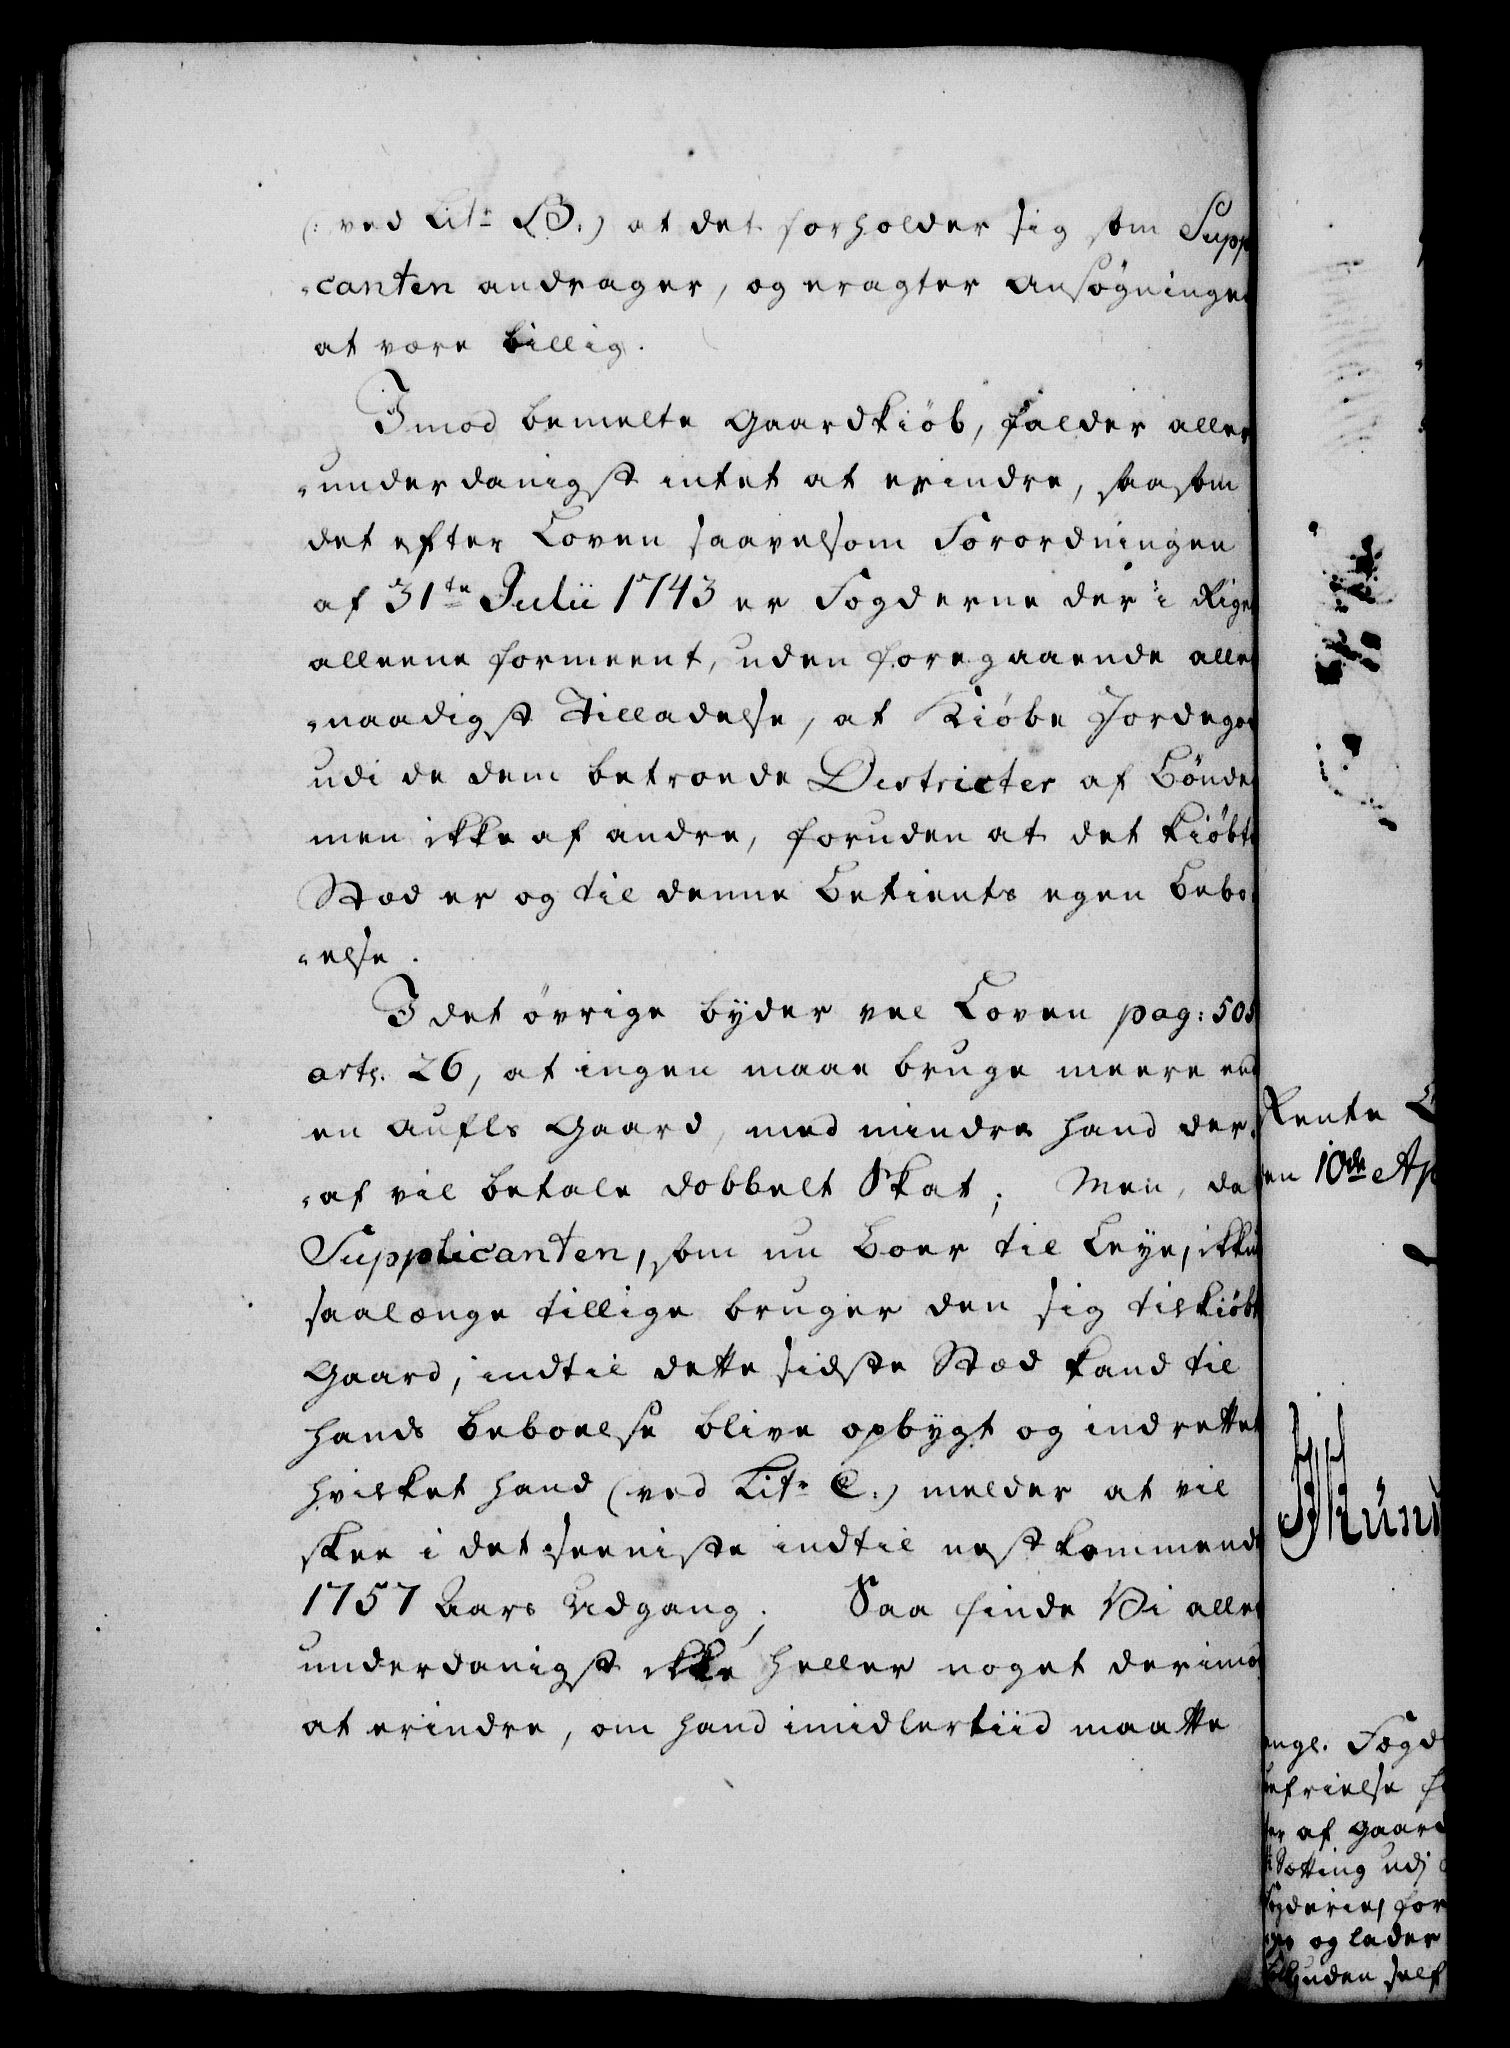 (: ved Litr B.) at det forholder sig som Supp
-canten andrager, og eragter Ansøgningen
at være billig.
Imod bemelte Gaardkiöb, falder aller
-underdanigst intet at erindre, saasom
det efter Loven saavelsom Forordningen
af 31te Julii 1743 er Fogderne der i Riget
alleene formeent, uden foregaaende aller
-naadigst Tilladelse, at Kiöbe Jordegod
udi de dem betroede Districter af Bönder
men ikke af andre, foruden at det kiöbte
Stæd er og til denne Betients egen Bebo-
-else.
I det övrige byder vel Loven pag: 505
artl. 26, at ingen maae bruge meere end
en Aufls Gaard, med mindre hand der-
-af vil betale dobbelt Skat; Men, da
Supplicanten, som nu Boer til Leye, ikke
saalænge tillige bruger den sig tilkiöbte
Gaard, indtil dette sidste Stæd kand til
hands beboelse blive opbygt og indrettet
hvilket hand (ved Litr C:) melder at vil
skee i det seeniste indtil nestkommende
1757 Aars Udgang; Saa finde Vi aller
underdanigst ikke heller noget derimod
at erindre, om hand imidlertiid maatte
Rente
en 10de Ap
ngl. Fogd
befrielse
af Gaard
Sætting udj
for
og lader
uden self